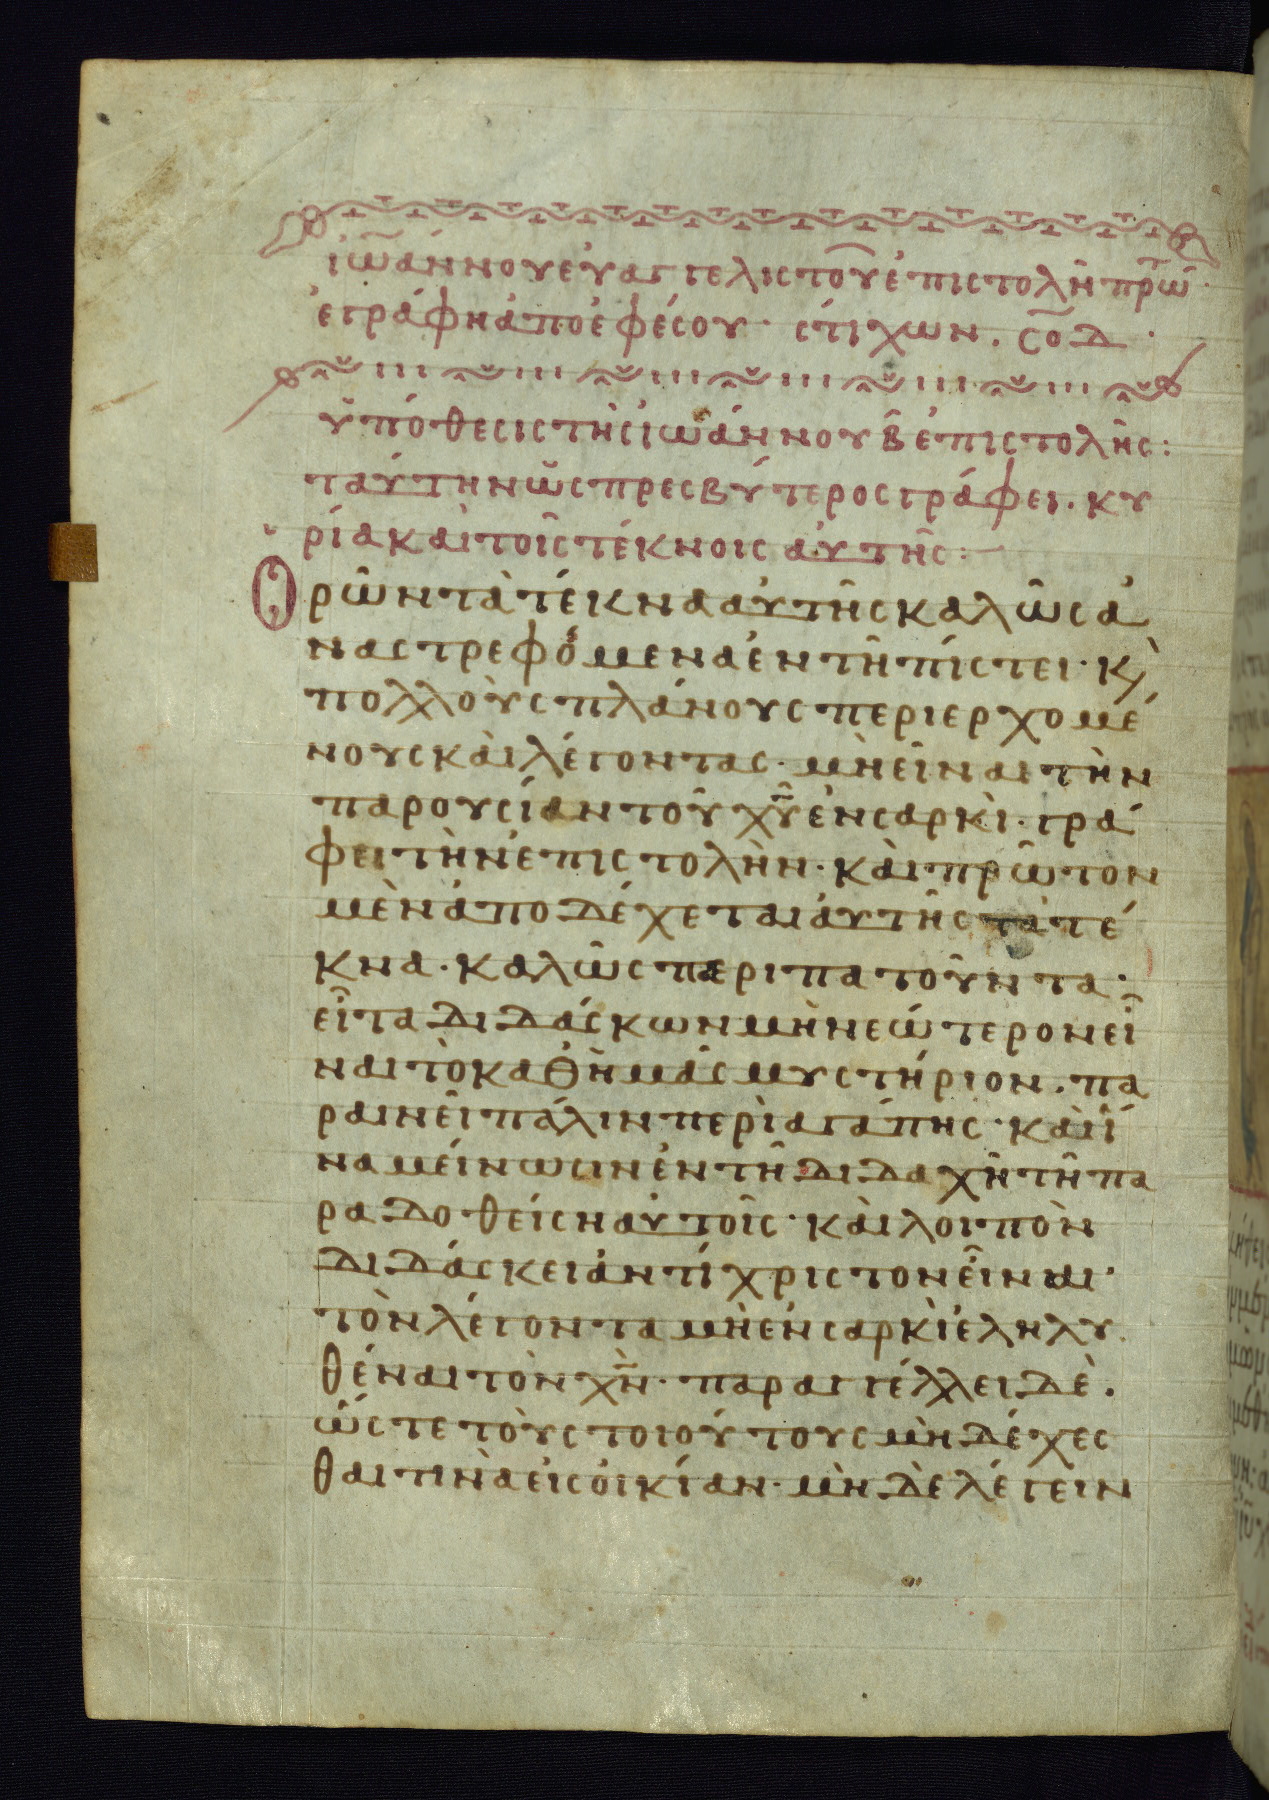 ἰω̃άννου εὐαγγελιστοῦ ἐπιστολὴ πρω̃τ·
ἐγράφη ἀπὸ ἐφέσου· στίχων. σ̅ο̅δ̅·
ὑπόθεσις τῆς ἰωάννου β̅ ἐπιστολῆς:
ταύτην ὡς πρεσβύτερος γράφει. κυ
ρία καὶ τοῖς τέκνοις αὐτῆς:
Ὁρῶν τὰ τέκνα αὐτῆς καλῶς ἀ
ναστρεφόμενα ἐν τῆ πίστει· κ̀
πολλοὺς πλάνους περιερχομέ
νους καὶ λέγοντας· μὴ εἶναι τὴν
παρουσίαν τοῦ χ̅υ̅ ἐν σαρκὶ· γρά
φει τὴν ἐπιστολὴν· καὶ πρῶτον
μὲν ἀποδέχεται αὐτῆς τὰ τέ
κνα· καλῶς περιπατοῦντα·
εἶτα διδάσκων μὴ νεώτερον εἶ
ναι τὸ καθ ἡμᾶς μυστήριον. πα
ραινεῖ πάλιν περὶ ἀγάπης· καὶ ἵ
να μείνωσιν ἐν τῆ διδαχῆ τῆ πα
ραδοθείση αὐτοῖς· καὶ λοιπὸν
διδάσκει ἀντίχριστον εἶναι·
τὸν λέγοντα μὴ ἐν σαρκὶ ἐληλυ
θέναι τὸν χ̅ν̅· παραγγέλλει δὲ.
ὥστε τοὺς τοιούτους μὴ δέχεσ
θαι τινὰ εἰς οἰκίαν· μὴ δὲ λέγειν